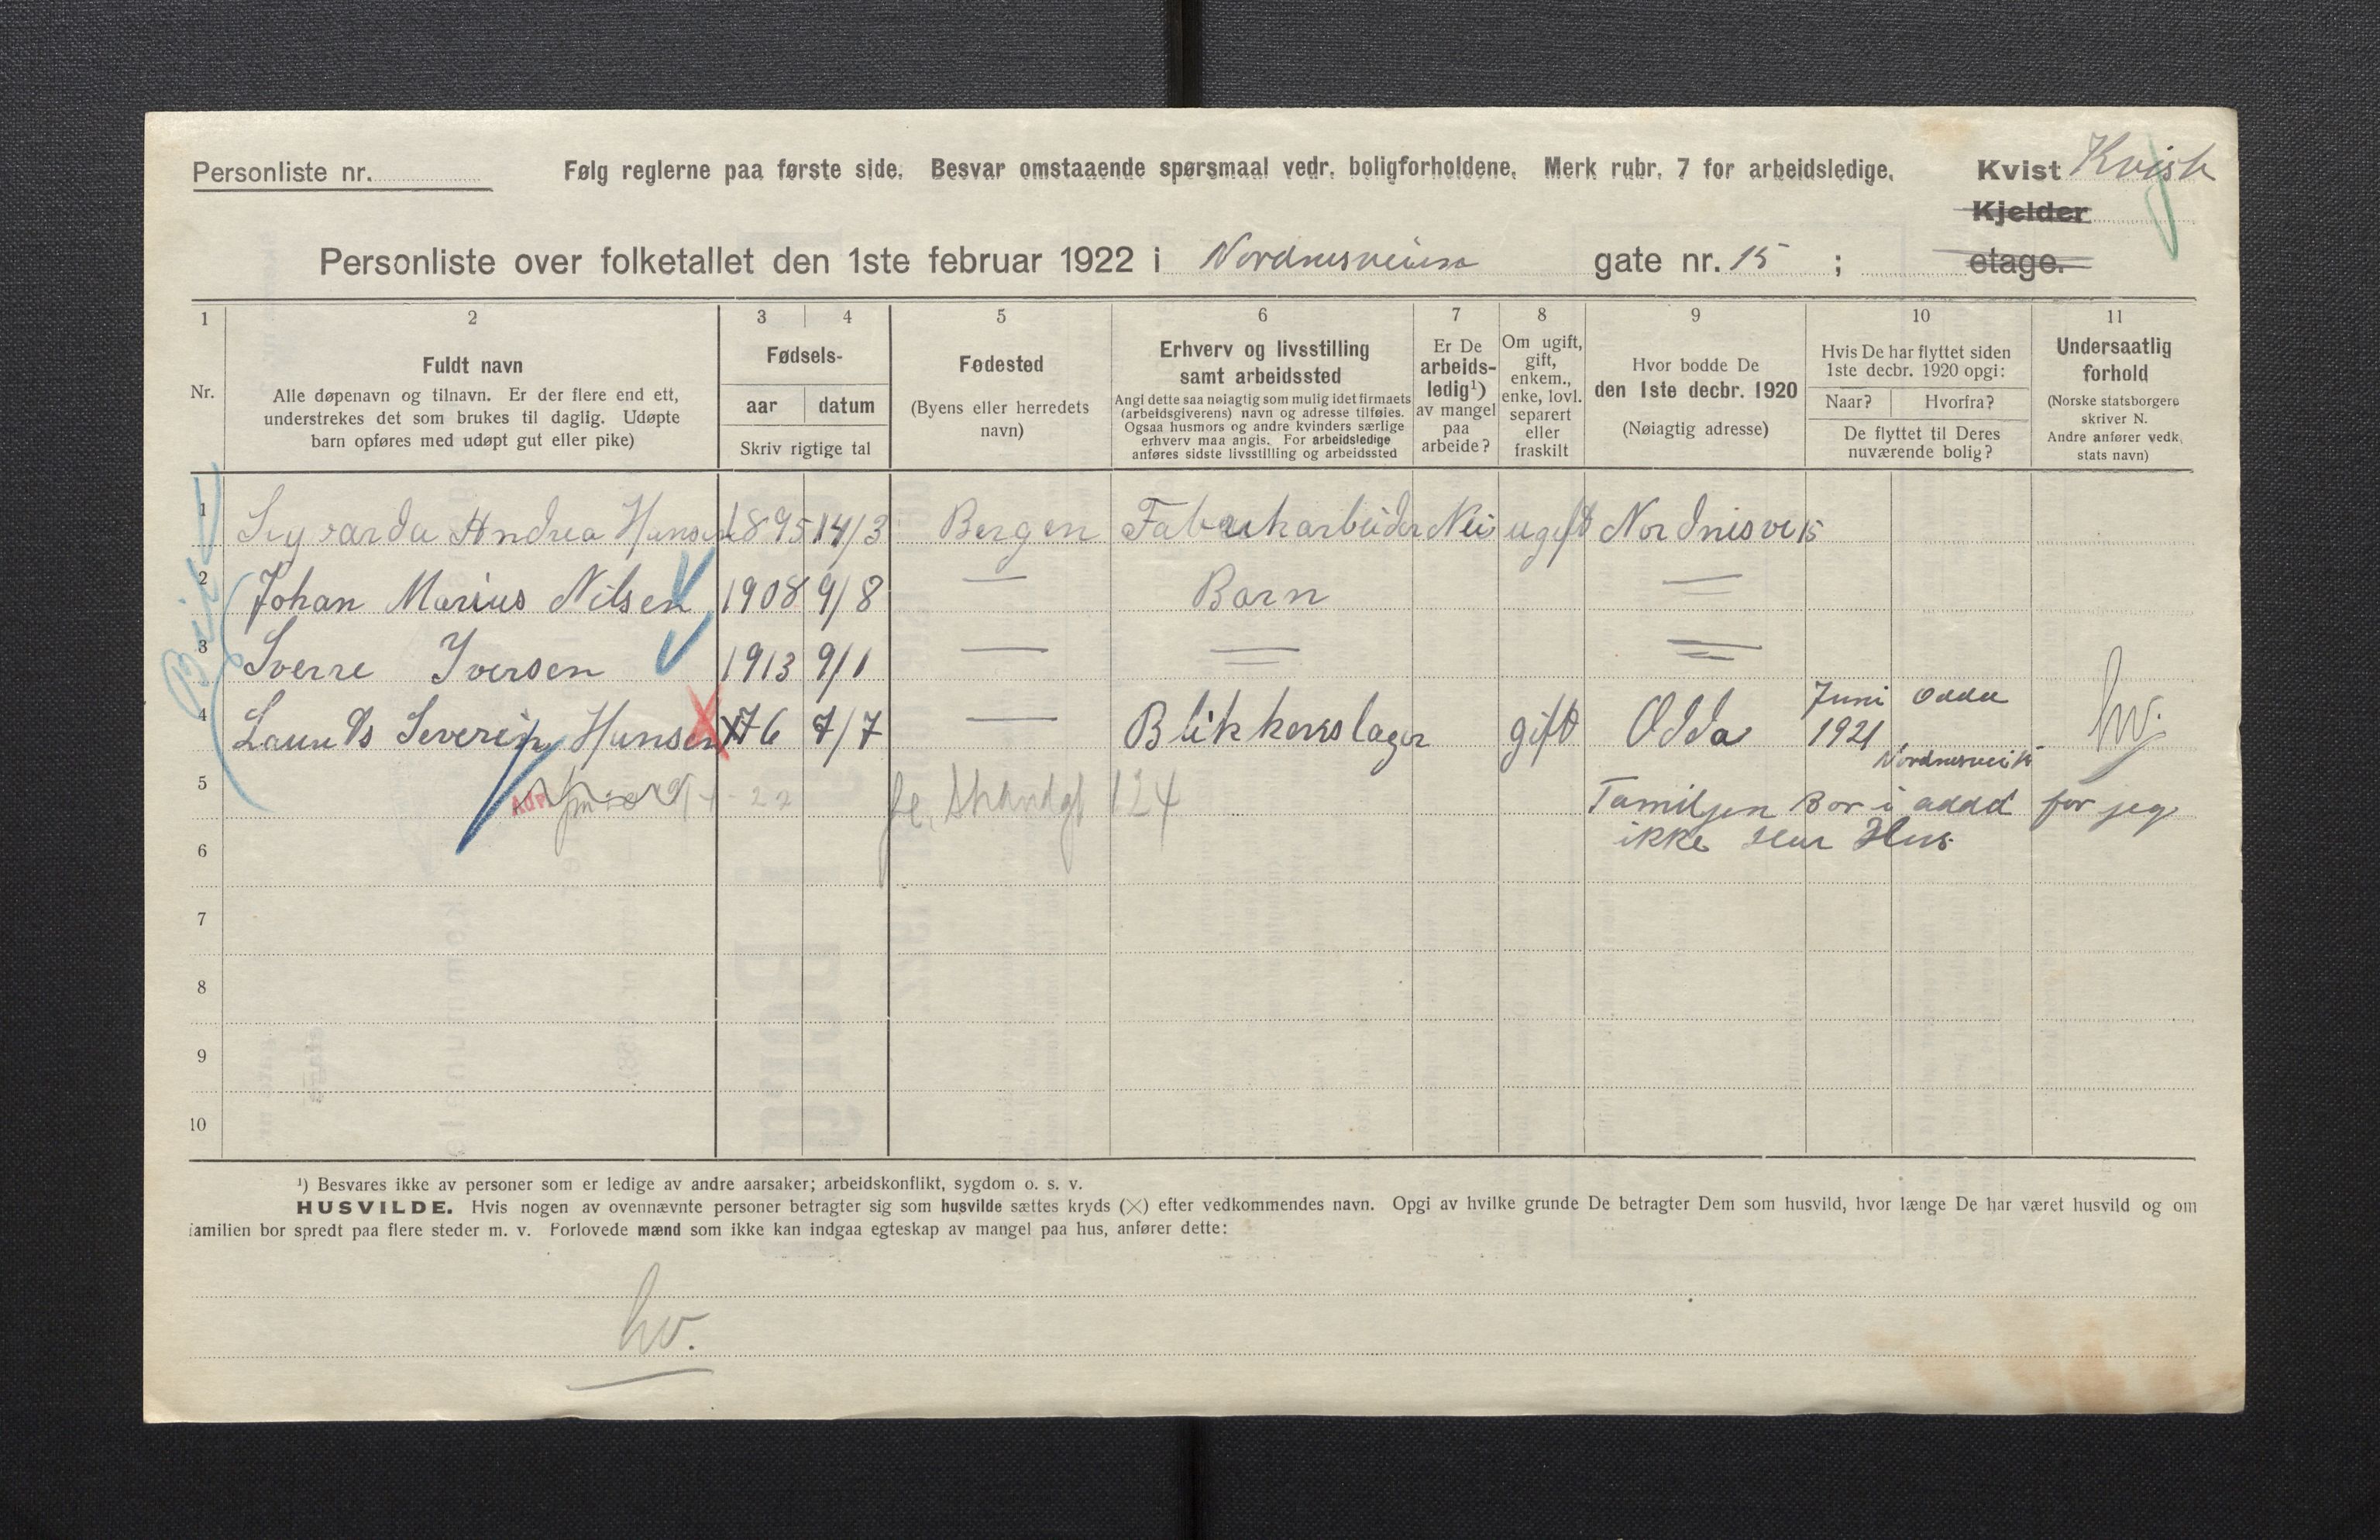 Personliste nr.
Følg reglerne paa første side. Besvar omstaaende spørsmaal vedr. boligforholdene. Merk rubr. 7 for arbeidsledige.
Kvist Kvist
Kjelder
Personliste over folketallet den 1ste februar 1922 i Nordnesveien gate nr. 15 ; etage.
1 2 3 4 5 6 7 8 9 10 11
Nr.
Fuldt navn
Alle døpenavn og tilnavn. Er der flere end ett,
understrekes det som brukes til daglig. Udøpte
barn opføres med udøpt gut eller pike)
Fødsels-
aar datum
Skriv rigtige tal
Fødested
(Byens eller herredets
navn)
Erhverv og livsstilling
samt arbeidssted
Angi dette saa nøiagtig som mulig idet firmaets
(arbeidsgiverens) navn og adresse tilføies.
Ogsaa husmors og andre kvinders særlige
erhverv maa angis. For arbeidsledige
anføres sidste livsstilling og arbeidssted
Er De
arbeids-
ledig¹)
av mangel
paa
arbeide?
Om ugift,
gift,
enkem.,
enke, lovl.
separert
eller
fraskilt
Hvor bodde De
den 1ste decbr. 1920
(Nøiagtig adresse)
Hvis De har flyttet siden
1ste decbr. 1920 opgi:
Naar? Hvorfra?
De flyttet til Deres
nuværende bolig?
Undersaatlig
forhold
(Norske statsborgere
skriver N.
Andre anfører vedk.
stats navn)
1 Sigvarda Andrea Hansen 1895 14/3 Bergen Fabrikarbeider Nei ugift Nordnisvei 15
2 Johan Marius Nilsen 1908 9/8 — Barn —
3 Sverre Iversen 1913 9/1 — — —
4 Severin Hansen X 76 7/7 — Blikkenslager gift Odda Juni 1921 Odda hv.
Nordnesvei 15
5 Adr. 22 Strandgt 124 Familjen Bor i odda for jeg
6 ikke Har Hus
7
8
9
10
¹) Besvares ikke av personer som er ledige av andre aarsaker; arbeidskonflikt, sygdom o. s. v.
HUSVILDE. Hvis nogen av ovennævnte personer betragter sig som husvilde sættes kryds (X) efter vedkommendes navn. Opgi av hvilke grunde De betragter Dem som husvild, hvor længe De har været husvild og om
familien bor spredt paa flere steder m. v. Forlovede mænd som ikke kan indgaa egteskap av mangel paa hus, anfører dette:
hv.